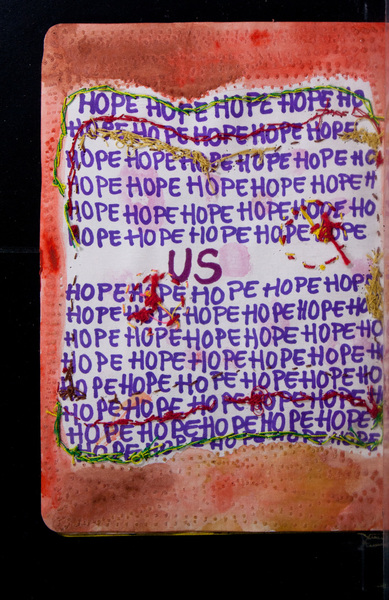 HOPE HOPE HOPE HOPE HO
HOPE HOPE HOPE HOPE HOPE
HOPE HOPE HOPE HOPE HO
HOPE HOPE HOPE HOPE H
HOPE HOPE HOPE HOPE H
HOPE HOPE HOPE HOPE HOPE
US
HOPE HOPE HOPE HOPE HOPE
HOPE HOPE HOPE HOPE HO
HOPE HOPE HOPE HOPE HO
HOPE HOPE HOPE HOPE H
HOPE HOPE HOPE HOPE HOPE
HOPE HOPE HOPE HOPE HOPE
HOPE HOPE HOPE HOPE HOPE
HOPE HOPE HOPE HOPE